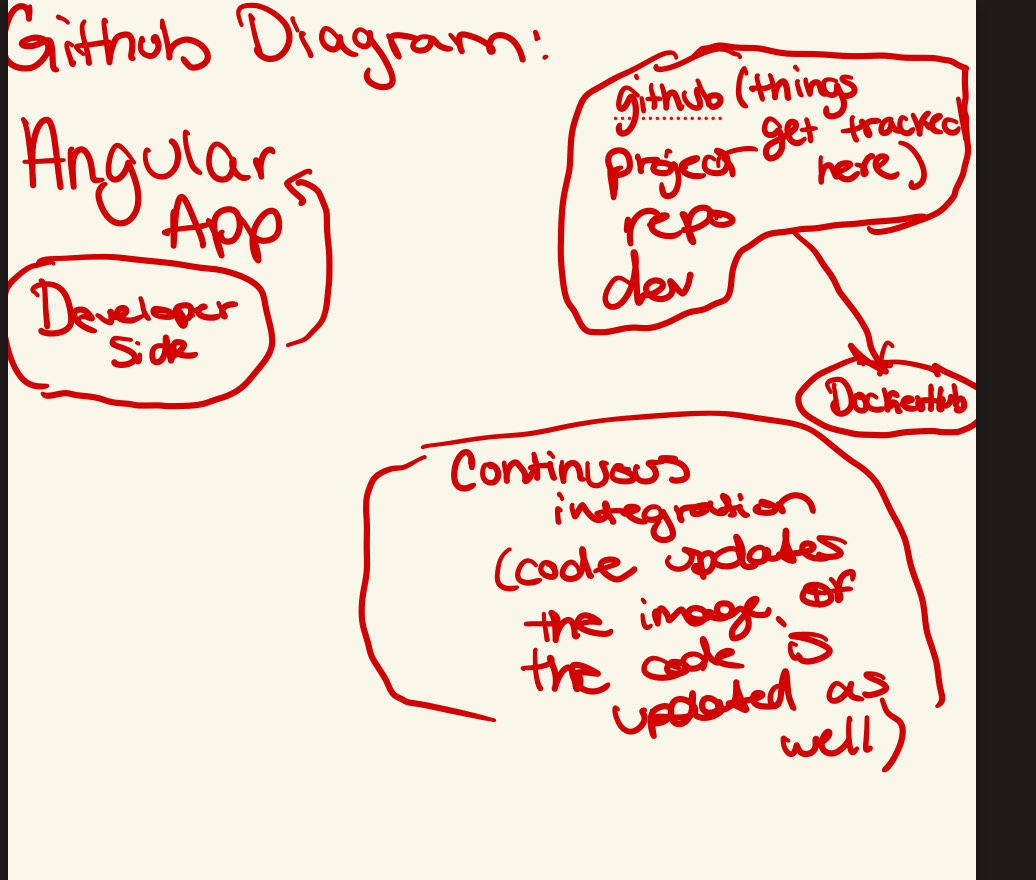 Github Diagram:
Angular
App
Developer
side
github (things
get tracked
project here)
repo
dev
DockerHub
Continuous
integration
(code updates
the image of
the code is
updated as
well)